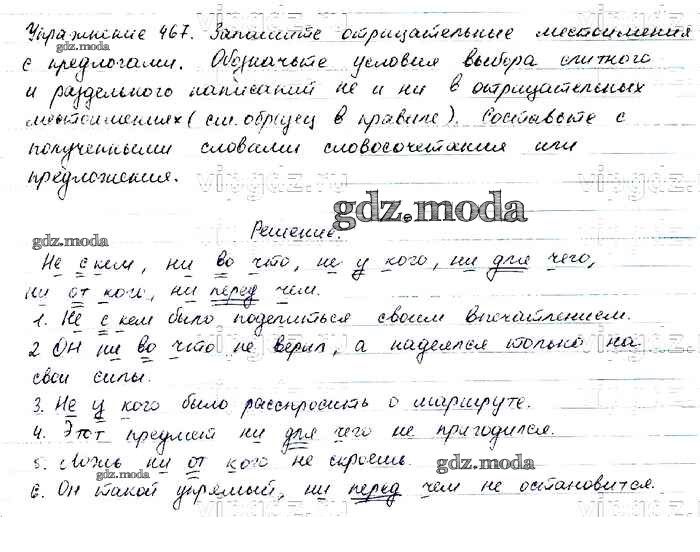 Упражнение 467. Запишите отрицательные местоимения
gdz.moda
с предлогами. Обозначьте условия выбора слитного
и раздельного написаний не и ни в отрицательных
местоимениях (см. образец в правиле). Составьте с
полученными словами словосочетания или
предложения.
gdz.moda
Решение.
gdz.moda
Не с кем, ни во что, не у кого, ни для чего,
ни от кого, ни перед чем.
1. Не с кем было поделиться своим впечатлением.
2 Он ни во что не верил, а надеялся только на
свои силы.
3. Не у кого было расспросить о маршруте.
4. Этот предмет ни для чего не пригодился.
5. Ложь ни от кого не скроешь.
gdz.moda
6. Он такой упрямый, ни перед чем не остановится.